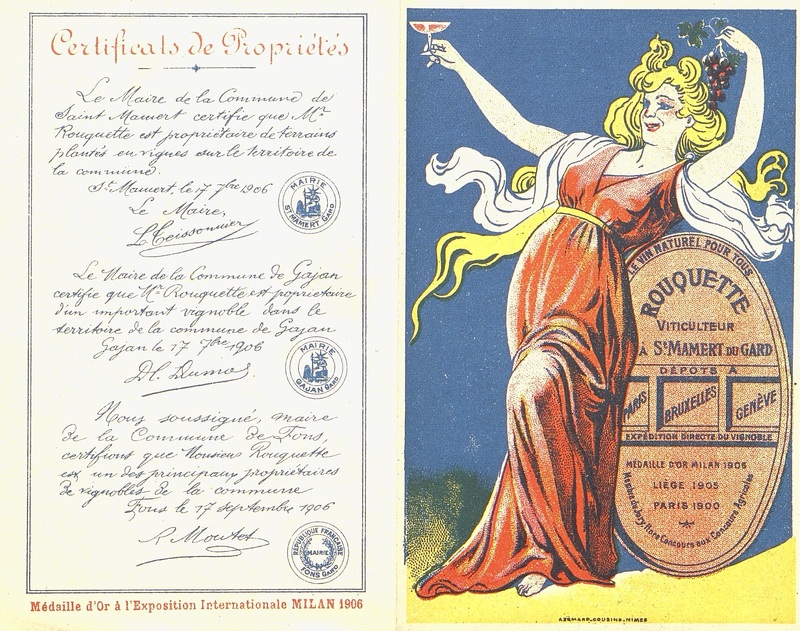 Certificats de Propriétés
Le Maire de la Commune de
Saint Mamert certifie que Mr
Rouguette est propriétaire de terrains
plantés en vignes sur le territoire de
la commune.
St Mamert, le 17 7bre 1906
Le Maire,
L. Ceissonnier
MAIRIE
ST MAMERT GARD
Le Maire de la Commune de Gajan
certifie que Mr Rouguette est propriétaire
d'un important vignoble dans le
territoire de la commune de Gajan
Gajan le 17 7bre 1906
Dl. Dumas.
MAIRIE
GAJAN GARD
Nous soussigné, maire
de la Commune de Fons,
certifions que Monsieur Rouguette
est un des principaux propriétaires
de vignobles de la commune
Fons le 17 septembre 1906
Moutet
RÉPUBLIQUE FRANÇAISE
MAIRIE
FONS GARD
Médaille d'Or à l'Exposition Internationale MILAN 1906
LE VIN NATUREL POUR TOUS
ROUQUETTE
VITICULTEUR
À St MAMERT DU GARD
DÉPOTS À
PARIS BRUXELLES GENÈVE
EXPÉDITION DIRECTE DU VIGNOBLE
MÉDAILLE D'OR MILAN 1906
LIÈGE 1905
PARIS 1900
Membre du Jury Hors Concours aux Concours Agricoles
AZEMARD-COUSINS-NIMES